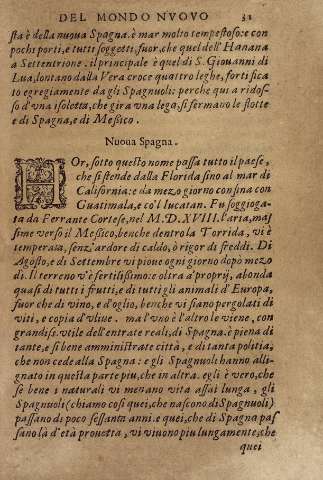 DEL MONDO NVOVO 32
sta è della nuoua Spagna. è mar molto tempestoso: e con
pochi porti, e tutti soggetti, fuor, che quel dell'Hanana
a Settentrione: il principale è quel di S. Giouanni di
Lua, lontano dalla Vera croce quattro leghe, fortifica
to egregiamente da gli Spagnuoli: perche qui a ridos-
so d'vna isoletta, che gira vna lega, si fermano le flotte
e di Spagna, e di Messico.
Nuoua Spagna.
HOr, sotto questo nome passa tutto il paese,
che si stende dalla Florida sino al mar di
California: e da mezo giorno confina con
Guatimala, e co'l Iucatan. Fu soggioga
ta da Ferrante Cortese, nel M. D. XVIII. l'aria, mas
sime verso il Messico, benche dentro la Torrida, vi è
temperata, senz'ardore di caldo, ò rigor di freddi. Di
Agosto, e di Settembre vi pioue ogni giorno dopò mezo
dì. Il terreno v'è fertilissimo: e oltra a' proprij, abonda
quasi di tutti i frutti, e di tutti gli animali d'Europa,
fuor che di vino, e d'oglio, benche vi siano pergolati di
viti, e copia d'vliue. ma l'vno è l'altro le viene, con
grandiss. vtile dell'entrate reali, di Spagna. è piena di
tante, e sì bene amministrate città, e di tanta politia,
che non cede alla Spagna: e gli Spagnuoli hanno alli-
gnato in questa parte piu, che in altra. egli è vero, che
sè bene i naturali vi menano vita assai lunga, gli
Spagnuoli (chiamo così quei, che nascono di Spagnuoli)
passano di poco sessanta anni. e quei, che di Spagna pas
sano là d'età prouetta, vi viuono piu lungamente, che
quei